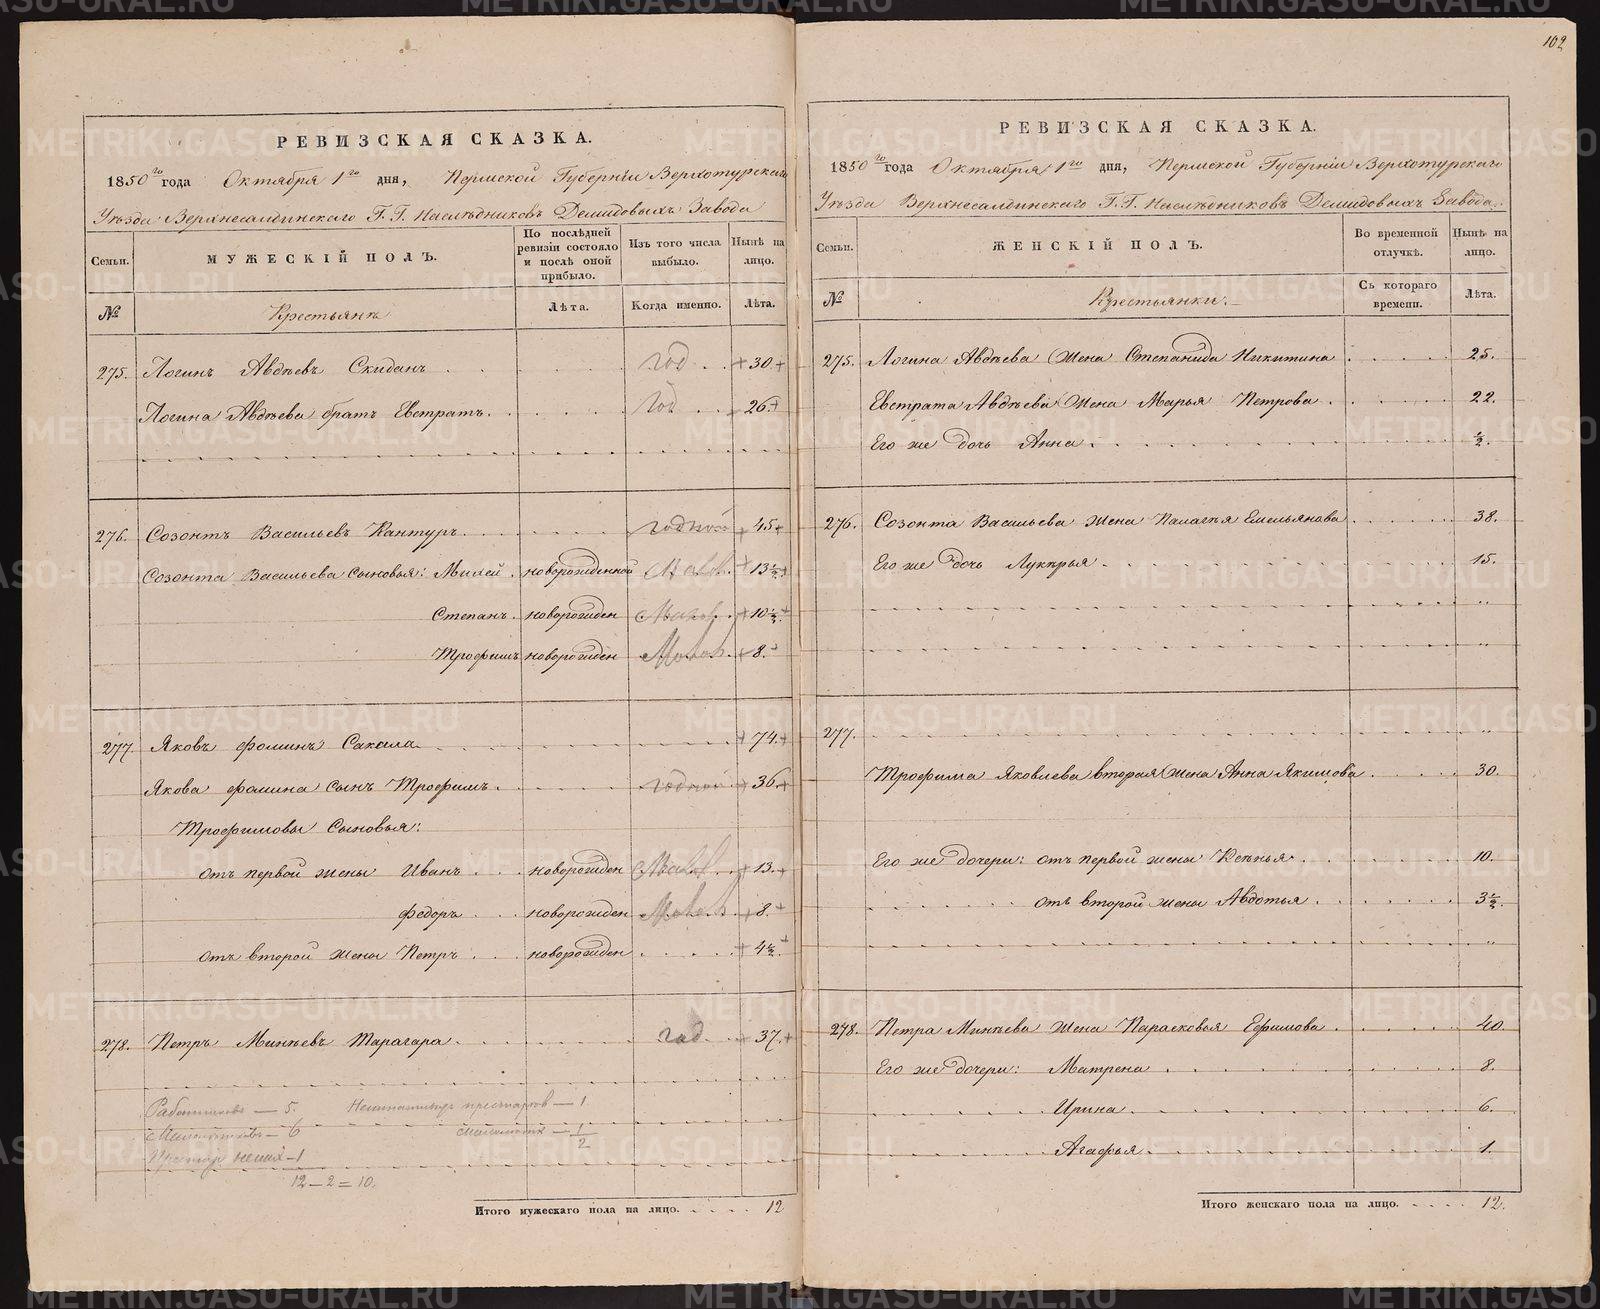 102
РЕВИЗСКАЯ СКАЗКА.
1850го года Октября 1го дня, Пермской Губерніи Верхотурскаго
Уѣзда Верхнесалдинскаго Г.Г. Наслѣдниковъ Демидовыхъ Завода
Семьи. МУЖЕСКІЙ ПОЛЪ. По послѣдней ревизіи состояло и послѣ оной прибыло. Изъ того числа выбыло. Нынѣ на лицо.
№ Крестьяне Лѣта. Когда именно. Лѣта.
275. Логинъ Авдѣевъ Скиданъ год 30
Логина Авдѣева братъ Евстратъ год 26
276. Созонтъ Васильевъ Кантуръ годной 45
Созонта Васильева сыновья: Милей новорожденной 13½
Степанъ новорожден 10½
Трофимъ новорожден 8
277. Яковъ Фоминъ Сакала 74
Якова Фомина сынъ Трофимъ годной 36
Трофимовы сыновья:
отъ первой жены Иванъ новорожден 13
Федоръ новорожден 8
отъ второй жены Петръ новорожден 4½
278. Петръ Минѣевъ Тарагара год 37
Работников — 5.
— 6
— 1
12 — 2 = 10.
— 1
— 1
2
Итого мужескаго пола на лицо. 12
РЕВИЗСКАЯ СКАЗКА.
1850го года Октября 1го дня, Пермской Губерніи Верхотурскаго
Уѣзда Верхнесалдинскаго Г.Г. Наслѣдниковъ Демидовыхъ Завода.
Семьи. ЖЕНСКІЙ ПОЛЪ. Во временной отлучкѣ. Нынѣ на лицо.
№ Крестьянки. Съ котораго времени. Лѣта.
275. Логина Авдѣева жена Степанида Никитина 25.
Евстрата Авдѣева жена Марья Петрова 22.
Его же дочь Анна ½
276. Созонта Васильева жена Палагѣя Емельянова 38.
Его же дочь Лукѣрья 15.
277.
Трофима Яковлева вторая жена Анна Якимова 30.
Его же дочери: отъ первой жены Ксѣнья 10.
отъ второй жены Авдотья 3½
278. Петра Минѣева жена Парасковья Ефимова 40
Его же дочери: Матрена 8.
Ирина 6.
Агафья 1.
Итого женскаго пола на лицо. 12.
METRIKI.GASO-URAL.RU